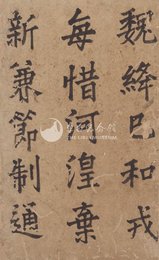 魏絳已和戎
每惜河湟棄
新兼節制通